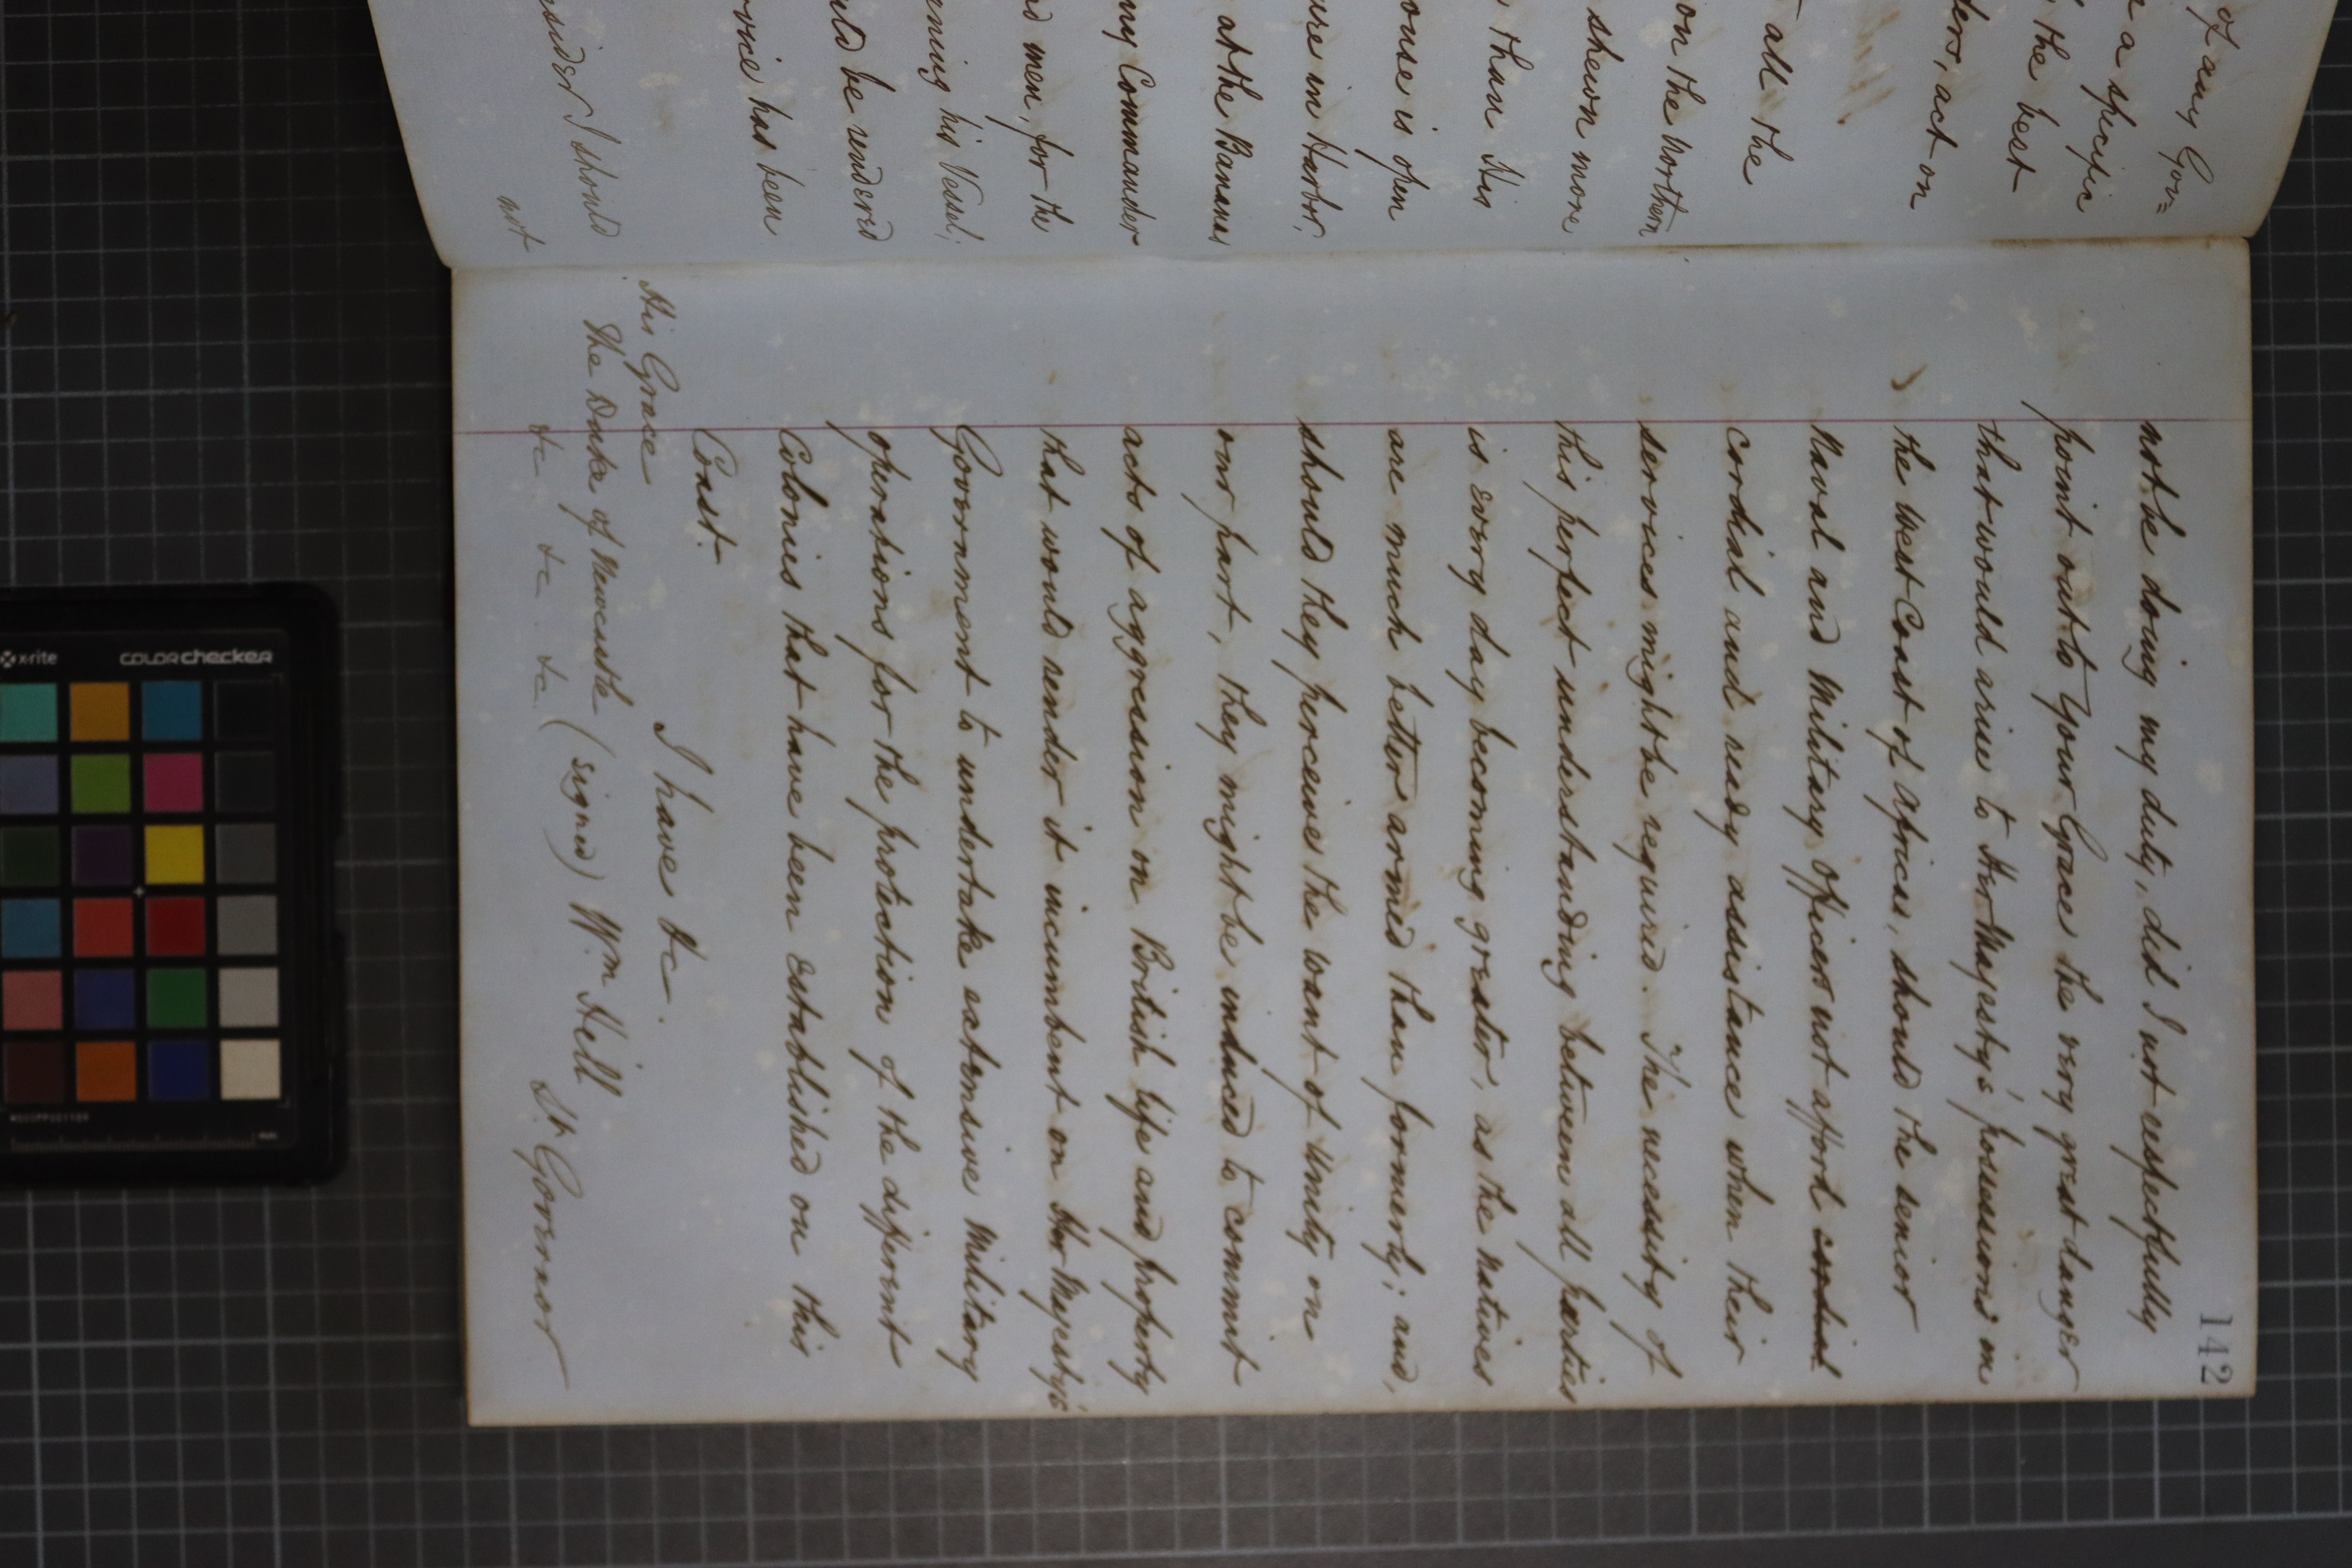 of any Gov=
a specific
the best
ders, act on
all the
on the Northern
shewn more
than His
ouse is open
ure in Harbor,
at the Bananas
ny Commander
d men, for the
ening his Vessel;
uld be rendered
rvice has been
nsider I should
not
142
not be doing my duty, did I not respectfully
point out to Your Grace the very great danger
that would arise to Her Majesty's possessions on
the West Coast of Africa, should the senior
Naval and Military Officers not afford cordial
cordial and ready assistance when their
services might be required. The necessity of
this perfect understanding between all parties
is every day becoming greater, as the natives
are much better armed than formerly; and,
should they perceive the want of Unity on
our part, they might be induced to commit
acts of aggression on British life and property
that would render it incumbent on Her Majesty's
Government to undertake extensive Military
operations for the protection of the different
Colonies that have been established on this
Coast.
I have &c.
His Grace
The Duke of Newcastle (signed) Wm Hill
&c &c &c Lt. Governor
x-rite
colorchecker
mm